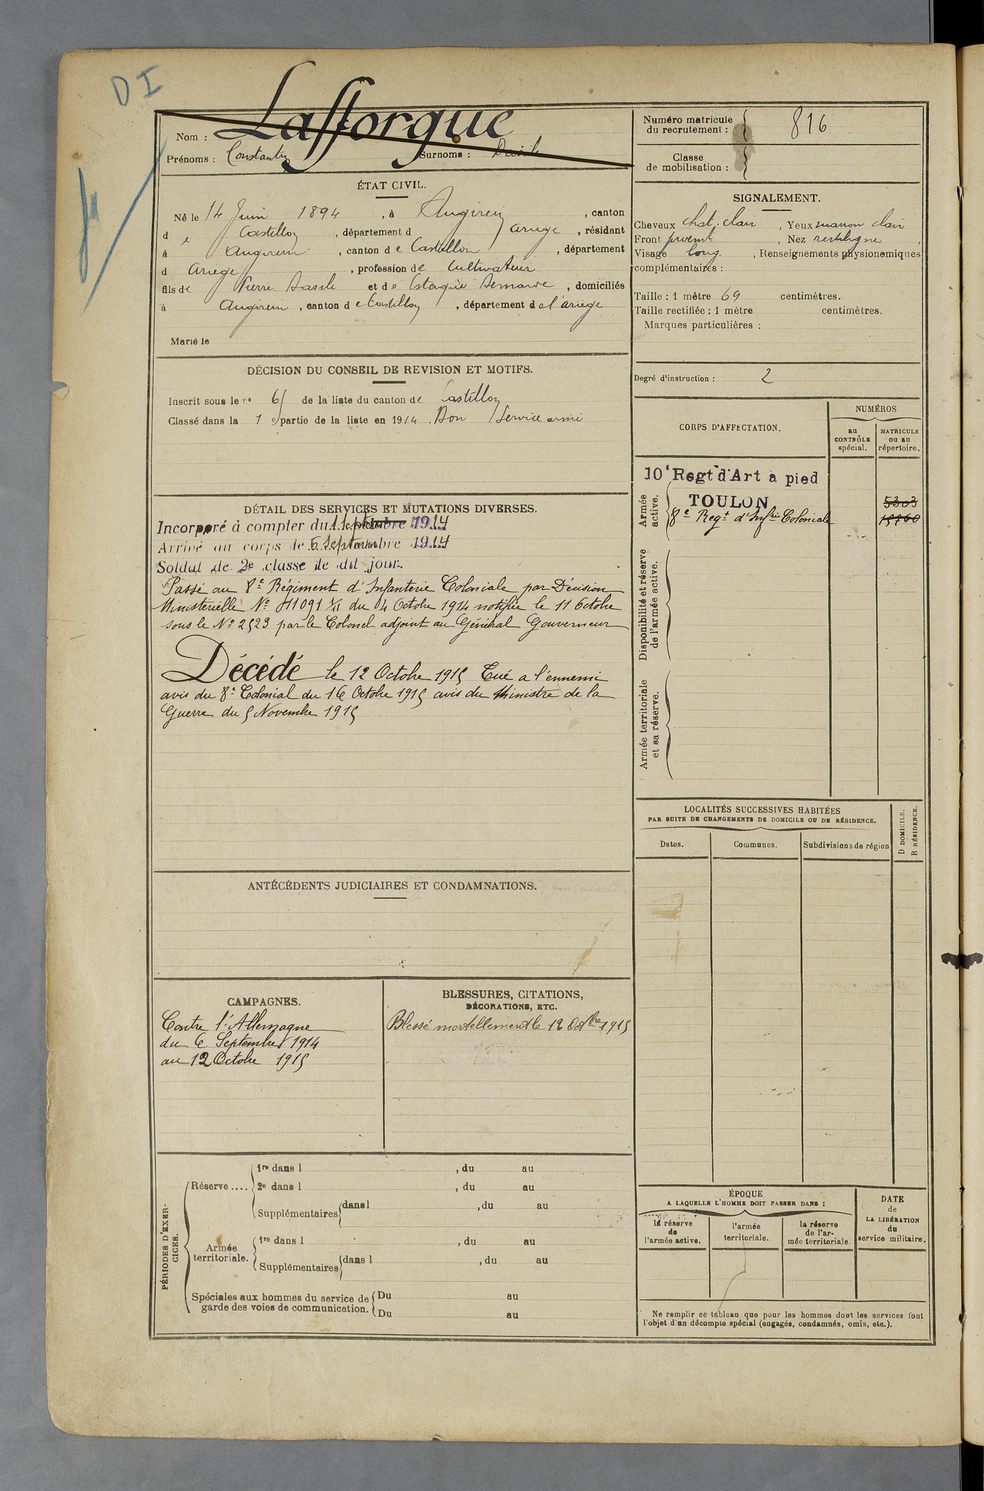 DI
Nom : Lafforgue
Prénoms : Constantin Surnoms :
Numéro matricule du recrutement : 816
Classe de mobilisation :
ÉTAT CIVIL.
Né le 14 Juin 1894, à Augirein, canton
d Castillon, département d Ariège, résidant
à Augirein, canton de Castillon, département
d Ariège, profession de Cultivateur
fils de Pierre et de, domiciliés
à Augirein, canton de Castillon, département de l'ariège
Marié le
SIGNALEMENT.
Cheveux chat. clair, Yeux marron clair
Front, Nez rectiligne,
Visage long, Renseignements physionomiques
complémentaires :
Taille : 1 mètre 69 centimètres.
Taille rectifiée : 1 mètre centimètres.
Marques particulières :
Degré d'instruction : 2
DÉCISION DU CONSEIL DE REVISION ET MOTIFS.
Inscrit sous le n° 6 de la liste du canton de Castillon
Classé dans la 1 e partie de la liste en 1914. Bon Service armé
CORPS D'AFFECTATION.
NUMÉROS
au CONTRÔLE spécial.
MATRICULE ou au répertoire.
Armée active.
10e Regt d'Art à pied
TOULON
5303
8e Regt d'Infrie Coloniale
Disponibilité et réserve de l'armée active.
Armée territoriale et sa réserve.
DÉTAIL DES SERVICES ET MUTATIONS DIVERSES.
Incorporé à compter du 1 Septembre 1914
Arrivé au corps le 6 Septembre 1914
Soldat de 2e classe le dit jour.
Passé au 8e Régiment d'Infanterie Coloniale par Décision
Ministérielle No 11091 du 04 Octobre 1914 notifiée le 11 Octobre
sous le No 2523 par le Colonel adjoint au Général Gouverneur
Décédé le 12 Octobre 1915 Tué à l'ennemi
avis du 8e Colonial du 16 Octobre 1915 avis du Ministre de la
Guerre du 5 Novembre 1915
LOCALITÉS SUCCESSIVES HABITÉES
PAR SUITE DE CHANGEMENTS DE DOMICILE OU DE RÉSIDENCE.
Dates.
Communes.
Subdivisions de région
D DOMICILE,
R RÉSIDENCE.
ANTÉCÉDENTS JUDICIAIRES ET CONDAMNATIONS.
CAMPAGNES.
Contre l'Allemagne
du 6 Septembre 1914
au 12 Octobre 1915
BLESSURES, CITATIONS,
DÉCORATIONS, ETC.
Blessé mortellement le 12 Octbre 1915
PÉRIODES D'EXERCICES.
Réserve....
1re dans l, du au
2e dans l, du au
Supplémentaires dans l, du au
Armée territoriale.
1re dans l, du au
Supplémentaires dans l, du au
Spéciales aux hommes du service de
garde des voies de communication.
Du au
Du au
ÉPOQUE
A LAQUELLE L'HOMME DOIT PASSER DANS :
la réserve de l'armée active.
l'armée territoriale.
la réserve de l'armée territoriale.
DATE
de
LA LIBÉRATION
du
service militaire.
Ne remplir ce tableau que pour les hommes dont les services font
l'objet d'un décompte spécial (engagés, condamnés, omis, etc.).